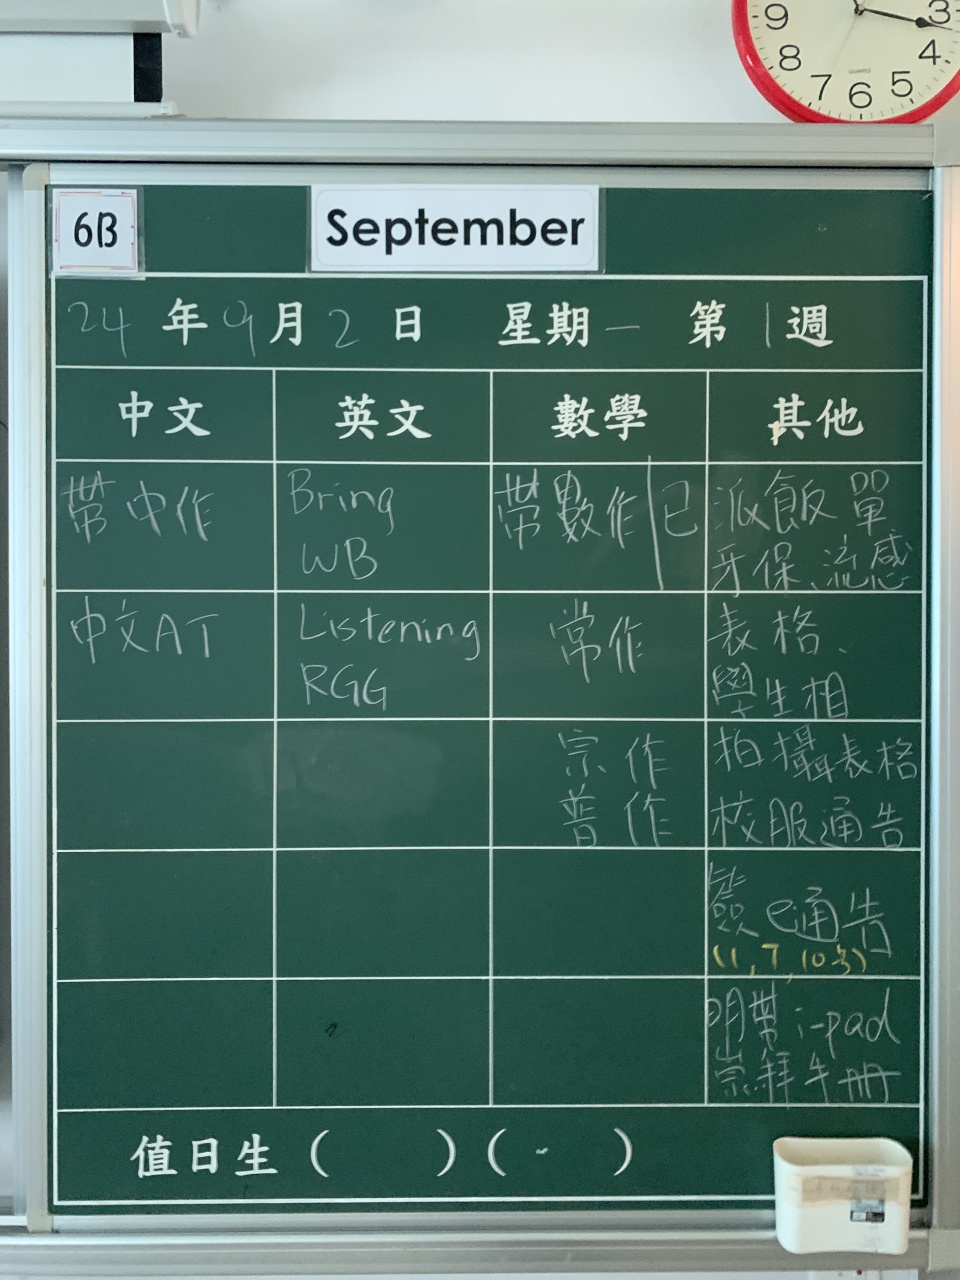 9 3
8 4
7 6 5
6B
September
24 年 9 月 2 日 星期一 第 1 週
中文 英文 數學 其他
帶中作
Bring
WB
帶數作 已
派飯單
牙保、流感
中文AT
Listening
RGG
常作
表格、
學生相
宗作
普作
拍攝表格
校服通告
簽e通告
(1,7,10号)
明帶i-pad
崇拜手冊
值日生 ( ) ( )